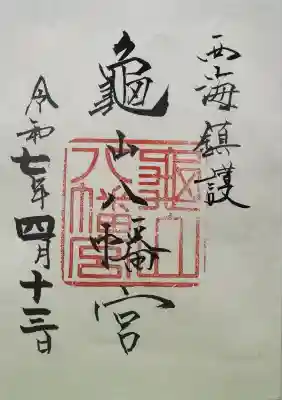 西海鎮護
龜山八幡宮
龜山八幡宮
令和七年四月十三日